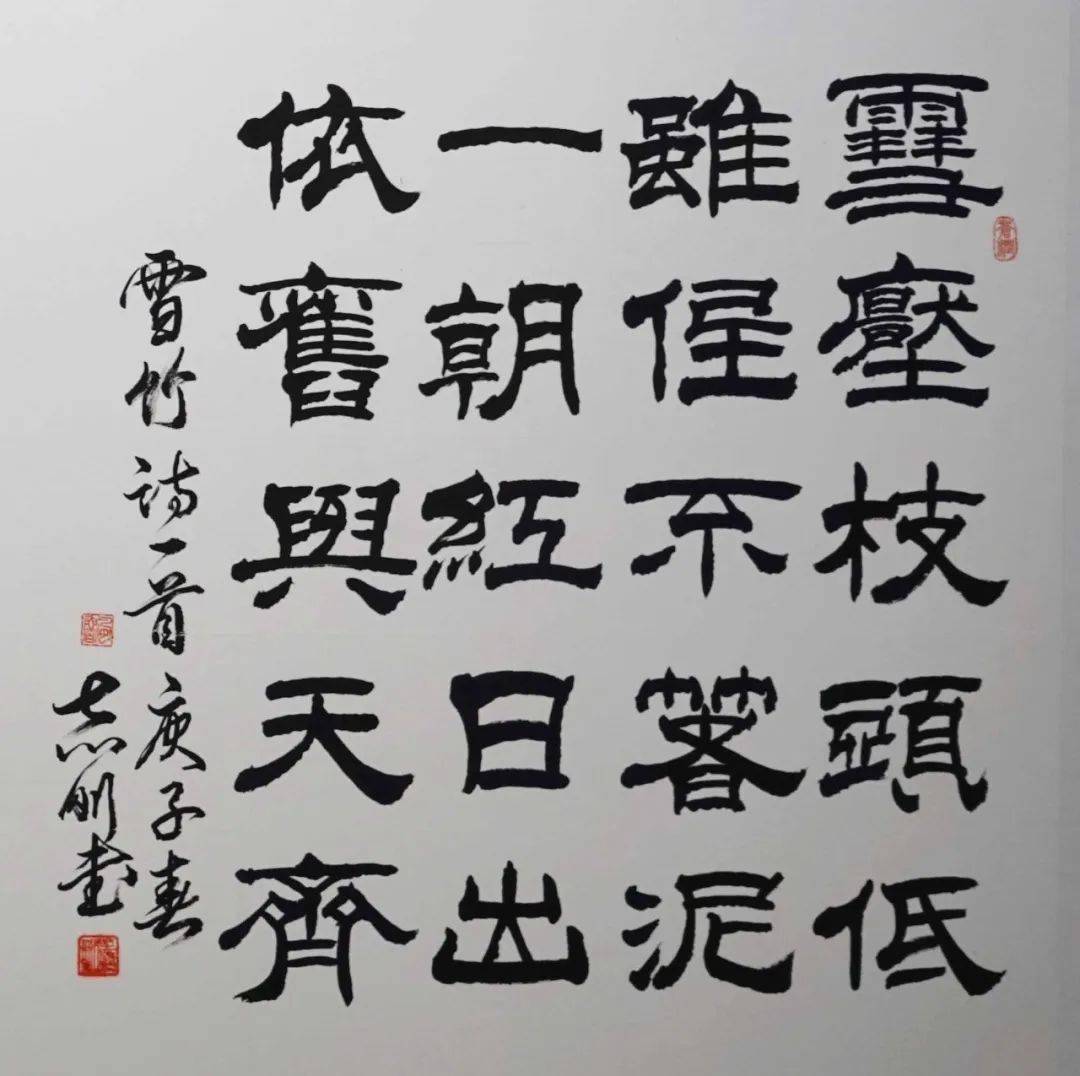 雪壓枝頭低
雖低不著泥
一朝紅日出
依舊與天齊
雪竹詩一首庚子春
志明書